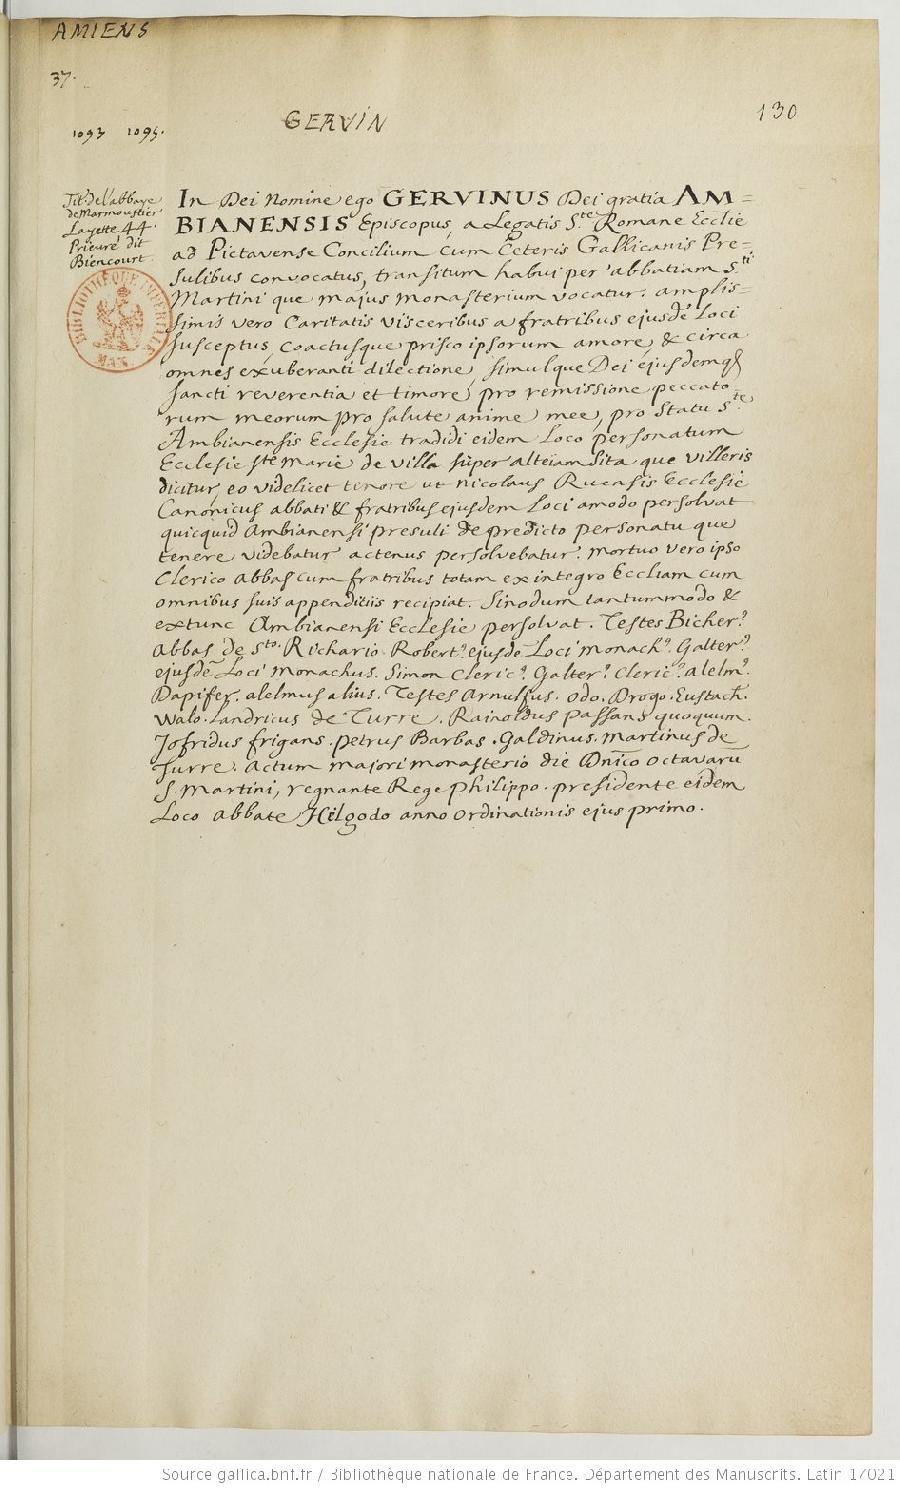 AMIENS
37.
1093 1095.
GERVIN
130
Tit. de l'abbaye
de Marmoustier
Layette 44.
Prieuré dit
Biencourt
In Dei Nomine ego GERVINUS Dei gratia AM=
BIANENSIS Episcopus, a Legatis Ste Romane Ecclie
ad Pictavense Concilium cum Ceteris Gallicanis Pre-
sulibus convocatus, transitum habui per abbatiam Sti
Martini que majus monasterium vocatur. amplis=
simis vero Caritatis visceribus a fratribus ejusdē Loci
susceptus, coactusque prisco ipsorum amore, & circa
omnes exuberanti dilectione, simulque Dei ejusdemq
sancti reverentia et timore, pro remissione peccato-
rum meorum pro salute anime mee, pro statu Ste
Ambianensis Ecclesie tradidi eidem Loco personatum
Ecclesie Ste Marie de villa super alteiam sita que villeris
dicitur, eo videlicet tenore ut Nicolaus Ruensis Ecclesie
Canonicus abbati & fratribus ejusdem Loci amodo persolvat
quicquid Ambianensi presuli de predicto personatu que
tenere videbatur actenus persolvebatur. Mortuo vero ipso
Clerico abbas cum fratribus totam ex integro Eccliam cum
omnibus suis appenditiis recipiat. Sinodum tantummodo &
extunc Ambianensi Ecclesie persolvat. Testes Bicher9
Abbas de Sto. Richario. Robert9 ejusdē Loci monach9. Galter9
ejusdē Loci monachus. Simon Cleric9. Galter9 Cleric9. alelm9
Dapifer. alelmus alius. Testes Arnulfus. Odo. Drogo. Eustach.
Walo. Landricus de Turre. Rainoldus passans quoquum.
Jofridus frigans. Petrus Barbas. Galdinus. Martinus de
Turre. Actum majori monasterio die Dn̄ico octavarū
S Martini, regnante Rege Philippo. presidente eidem
Loco abbate Hilgodo anno ordinationis ejus primo.
BIBLIOTHÈQUE IMPERIALE
MAN.
Source gallica.bnf.fr / Bibliothèque nationale de France. Département des Manuscrits. Latin 17021